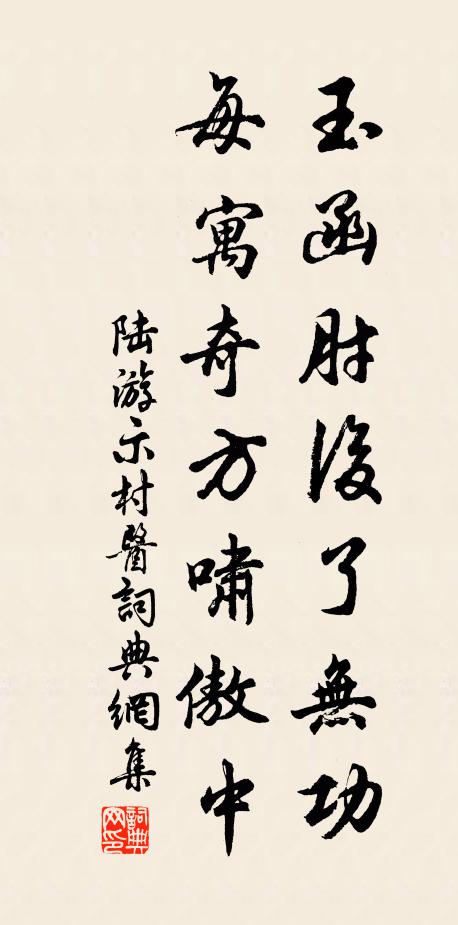 玉函肘後了無功
每寓奇方嘯傲中
陸游示村醫詞典網集
詞典网印